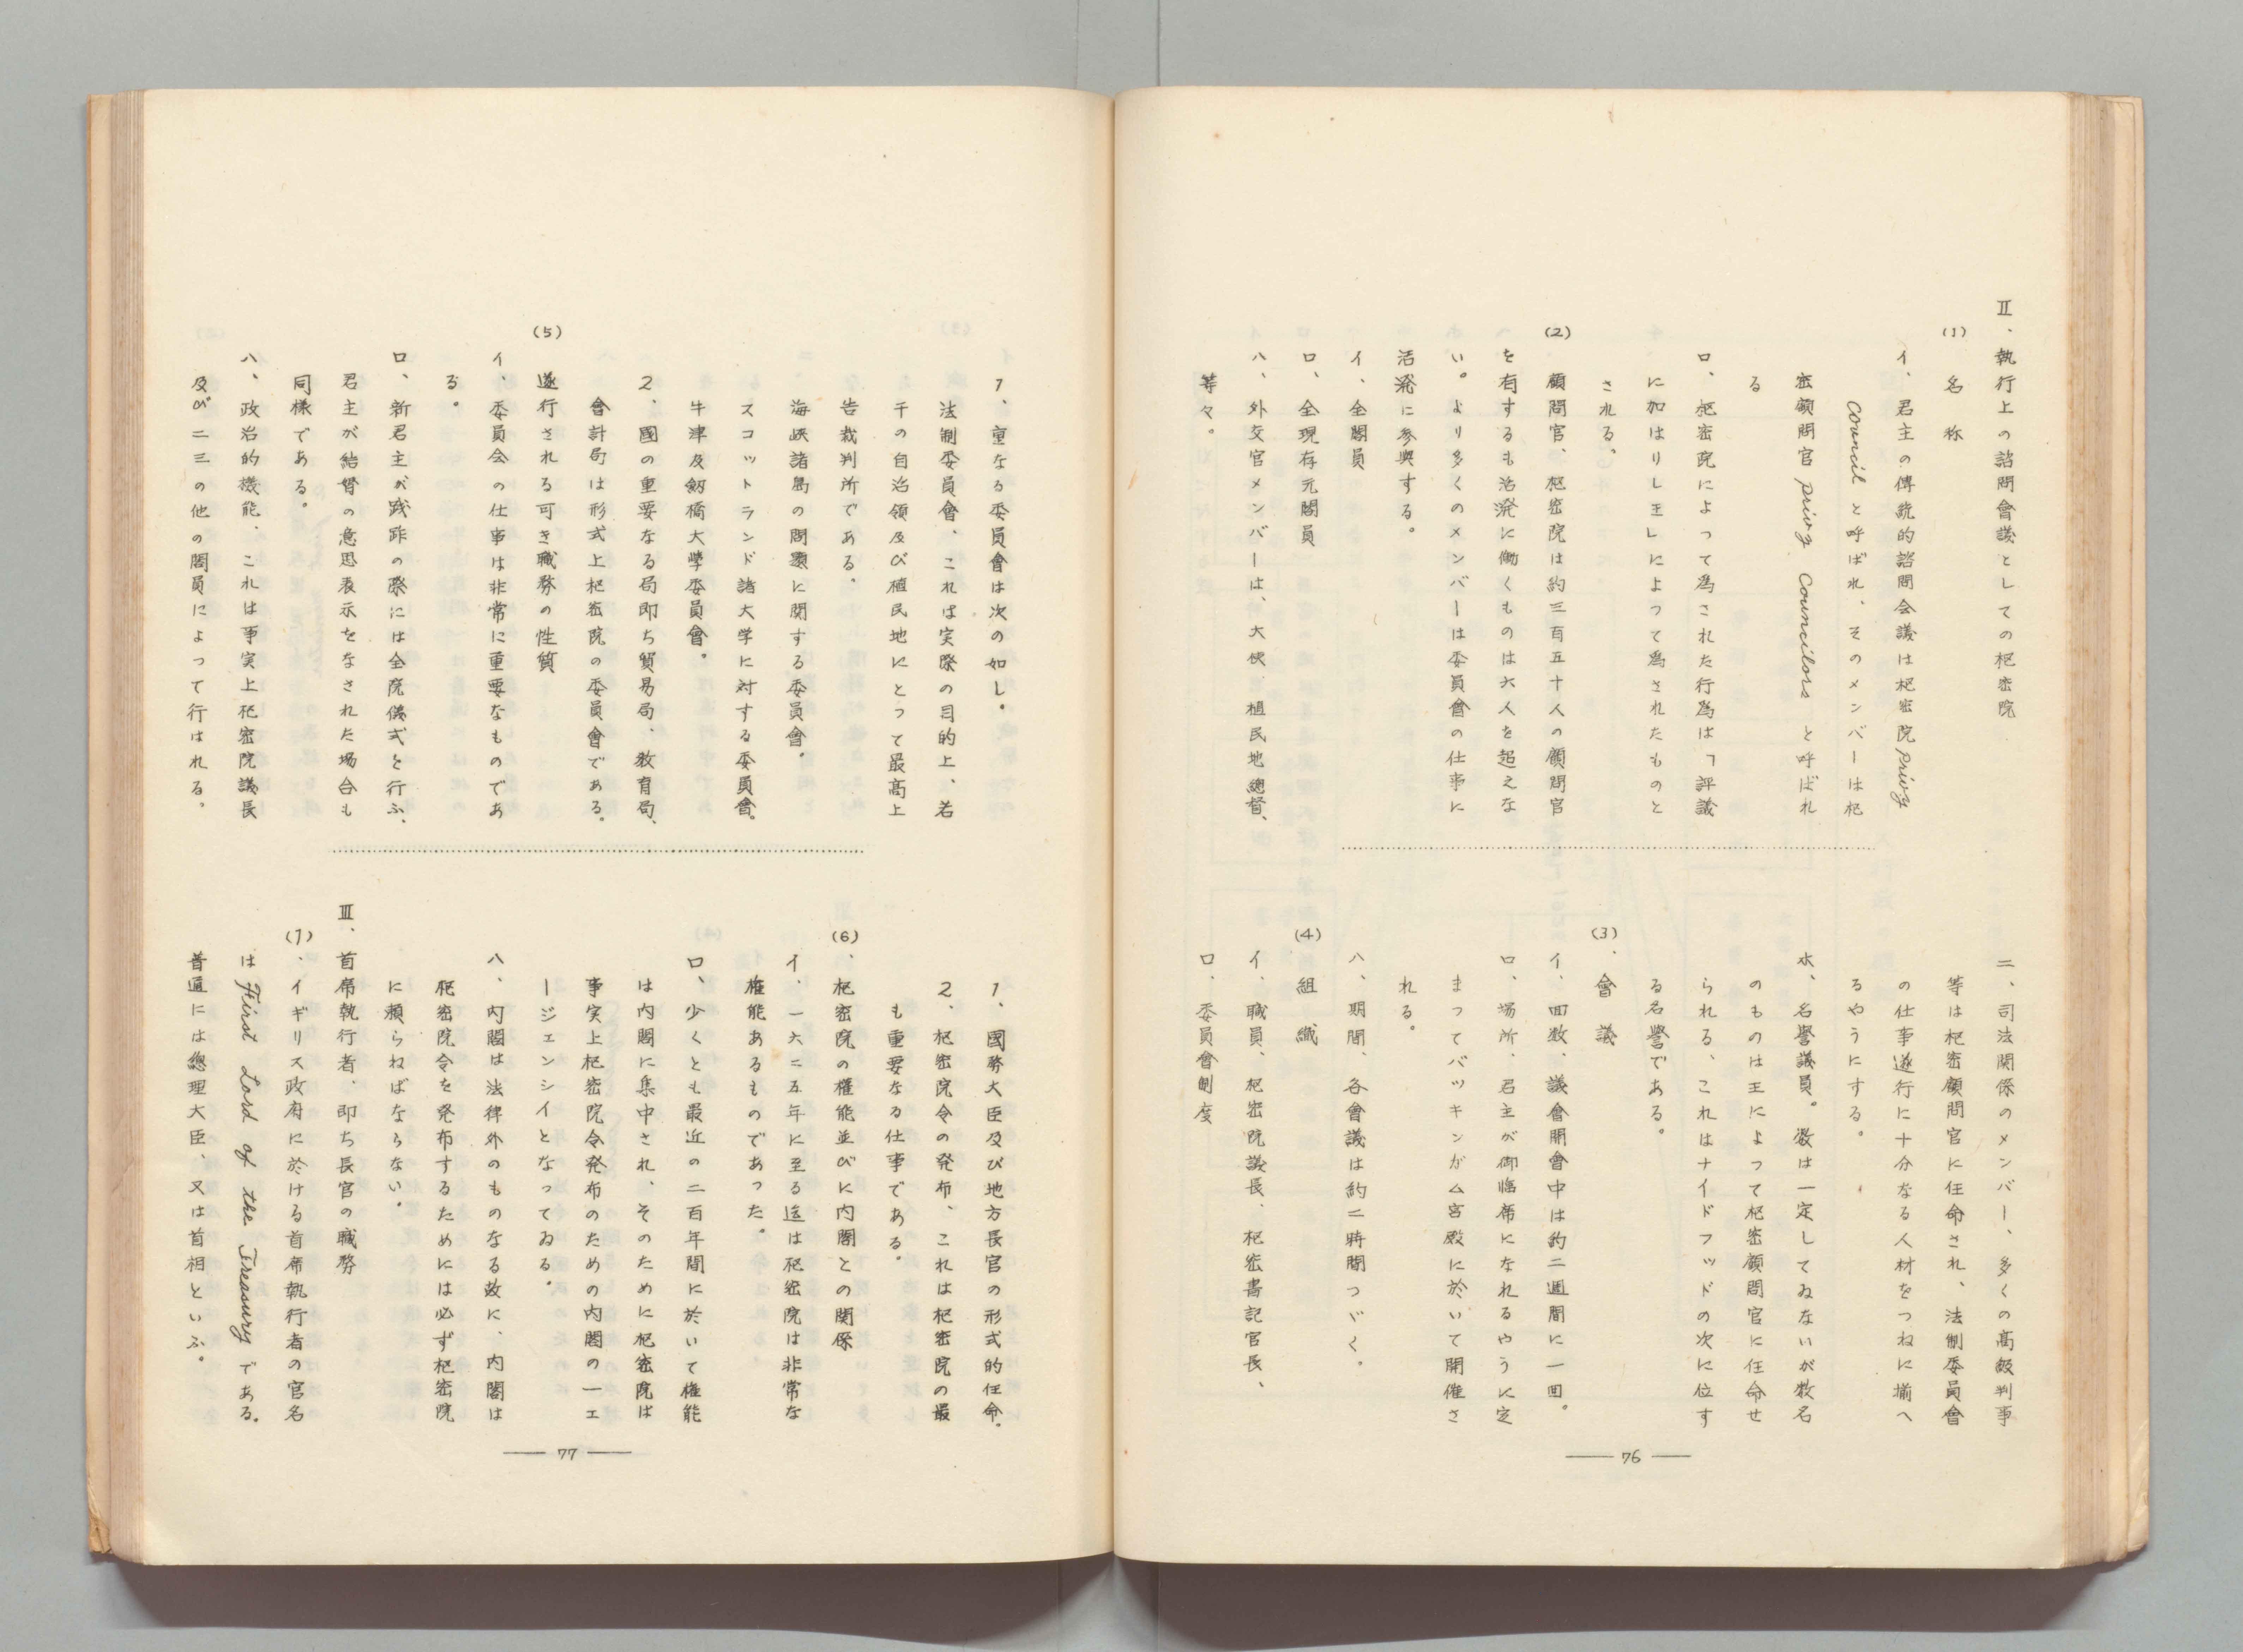 Ⅱ、執行上の諮問會議としての枢密院
(1) 名称
イ、君主の傳統的諮問会議は枢密院 privy
council と呼ばれ、そのメンバーは枢
密顧問官 privy Councilors と呼ばれ
る
ロ、枢密院によって為された行為は「評議
に加はりし王」によって為されたものと
される。
(2) 顧問官、枢密院は約三百五十人の顧問官
を有するも活溌に働くものは六人を超えな
い。より多くのメンバーは委員會の仕事に
活溌に参與する。
イ、全閣員
ロ、全現存元閣員
ハ、外交官メンバーは、大使、植民地總督、
等々。
ニ、司法関係のメンバー、多くの高級判事
等は枢密顧問官に任命され、法制委員會
の仕事遂行に十分なる人材をつねに揃へ
るやうにする。
ホ、名譽議員。数は一定してゐないが数名
のものは王によって枢密顧問官に任命せ
られる、これはナイドフッドの次に位す
る名誉である。
(3)、會議
イ、回数、議會開會中は約二週間に一回。
ロ、場所、君主が御臨席になれるやうに定
まってバッキンガム宮殿に於いて開催さ
れる。
ハ、期間、各會議は約二時間つゞく。
(4) 組織
イ、職員、枢密院議長、枢密書記官長、
ロ、委員會制度
— 76 —
1、重なる委員會は次の如し。
法制委員會、これは実際の目的上、若
干の自治領及び植民地にとって最高上
告裁判所である、
海峡諸島の問題に関する委員會。
スコットランド諸大学に対する委員會。
牛津及剱橋大學委員會。
2、國の重要なる局即ち貿易局、教育局、
會計局は形式上枢密院の委員會である。
(5) 遂行される可き職務の性質
イ、委員会の仕事は非常に重要なものであ
る。
ロ、新君主が践祚の際には全院儀式を行ふ、
君主が結婚の意思表示をなされた場合も
同様である。
ハ、政治的機能、これは事実上枢密院議長
及び二三の他の閣員によって行はれる。
1、國務大臣及び地方長官の形式的任命。
2、枢密院令の発布、これは枢密院の最
も重要なる仕事である。
(6)、枢密院の権能並びに内閣との関係
イ、一六二五年に至る迄は枢密院は非常な
権能あるものであった。
ロ、少くとも最近の二百年間に於いて権能
は内閣に集中され、そのために枢密院は
事実上枢密院令発布のための内閣の一エ
ージェンシイとなってゐる。
ハ、内閣は法律外のものなる故に、内閣は
枢密院令を発布するためには必ず枢密院
に頼らねばならない。
Ⅲ、首席執行者、即ち長官の職務
(1)、イギリス政府に於ける首席執行者の官名
は First Lord of the Treasury である。
普通には總理大臣、又は首相といふ。
— 77 —